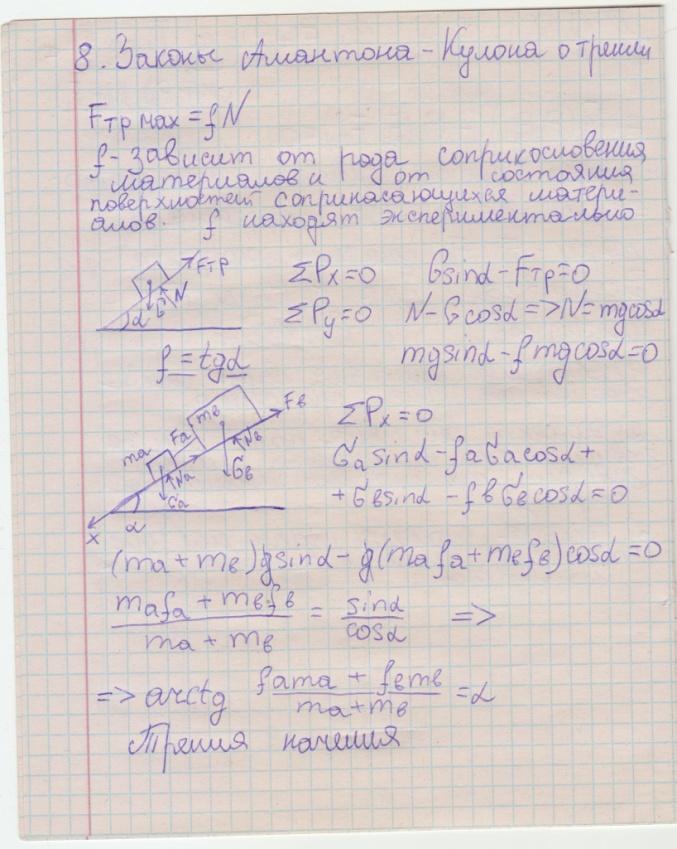 8. Законы Амантона - Кулона о трении
Fтр мах = fN
f - зависит от рода соприкословения
материалов и от состояния
поверхностей соприкасающихся матери-
алов. f находят экспериментально
Fтр
N
G
α
ΣPx=0 Gsinα - Fтр=0
ΣPy=0 N - Gcosα => N= mgcosα
f = tgα mgsinα - fmgcosα=0
Fв
mв
Fa
ma
Nв
Gв
Na
Ga
α
x
ΣPx=0
Ga sinα - fa Ga cosα +
+ Gв sinα - fв Gв cosα = 0
(ma + mв) g sinα - g(ma fa + mв fв) cosα = 0
ma fa + mв fв / ma + mв = sinα / cosα =>
=> arctg fa ma + fв mв / ma + mв = α
Трения качения